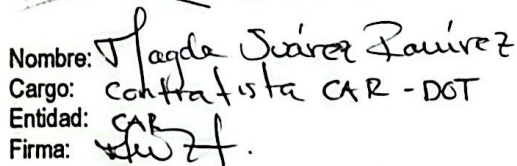 Nombre: Magda Suárez Ramírez
Cargo: Contratista CAR - DOT
Entidad: CAR
Firma: